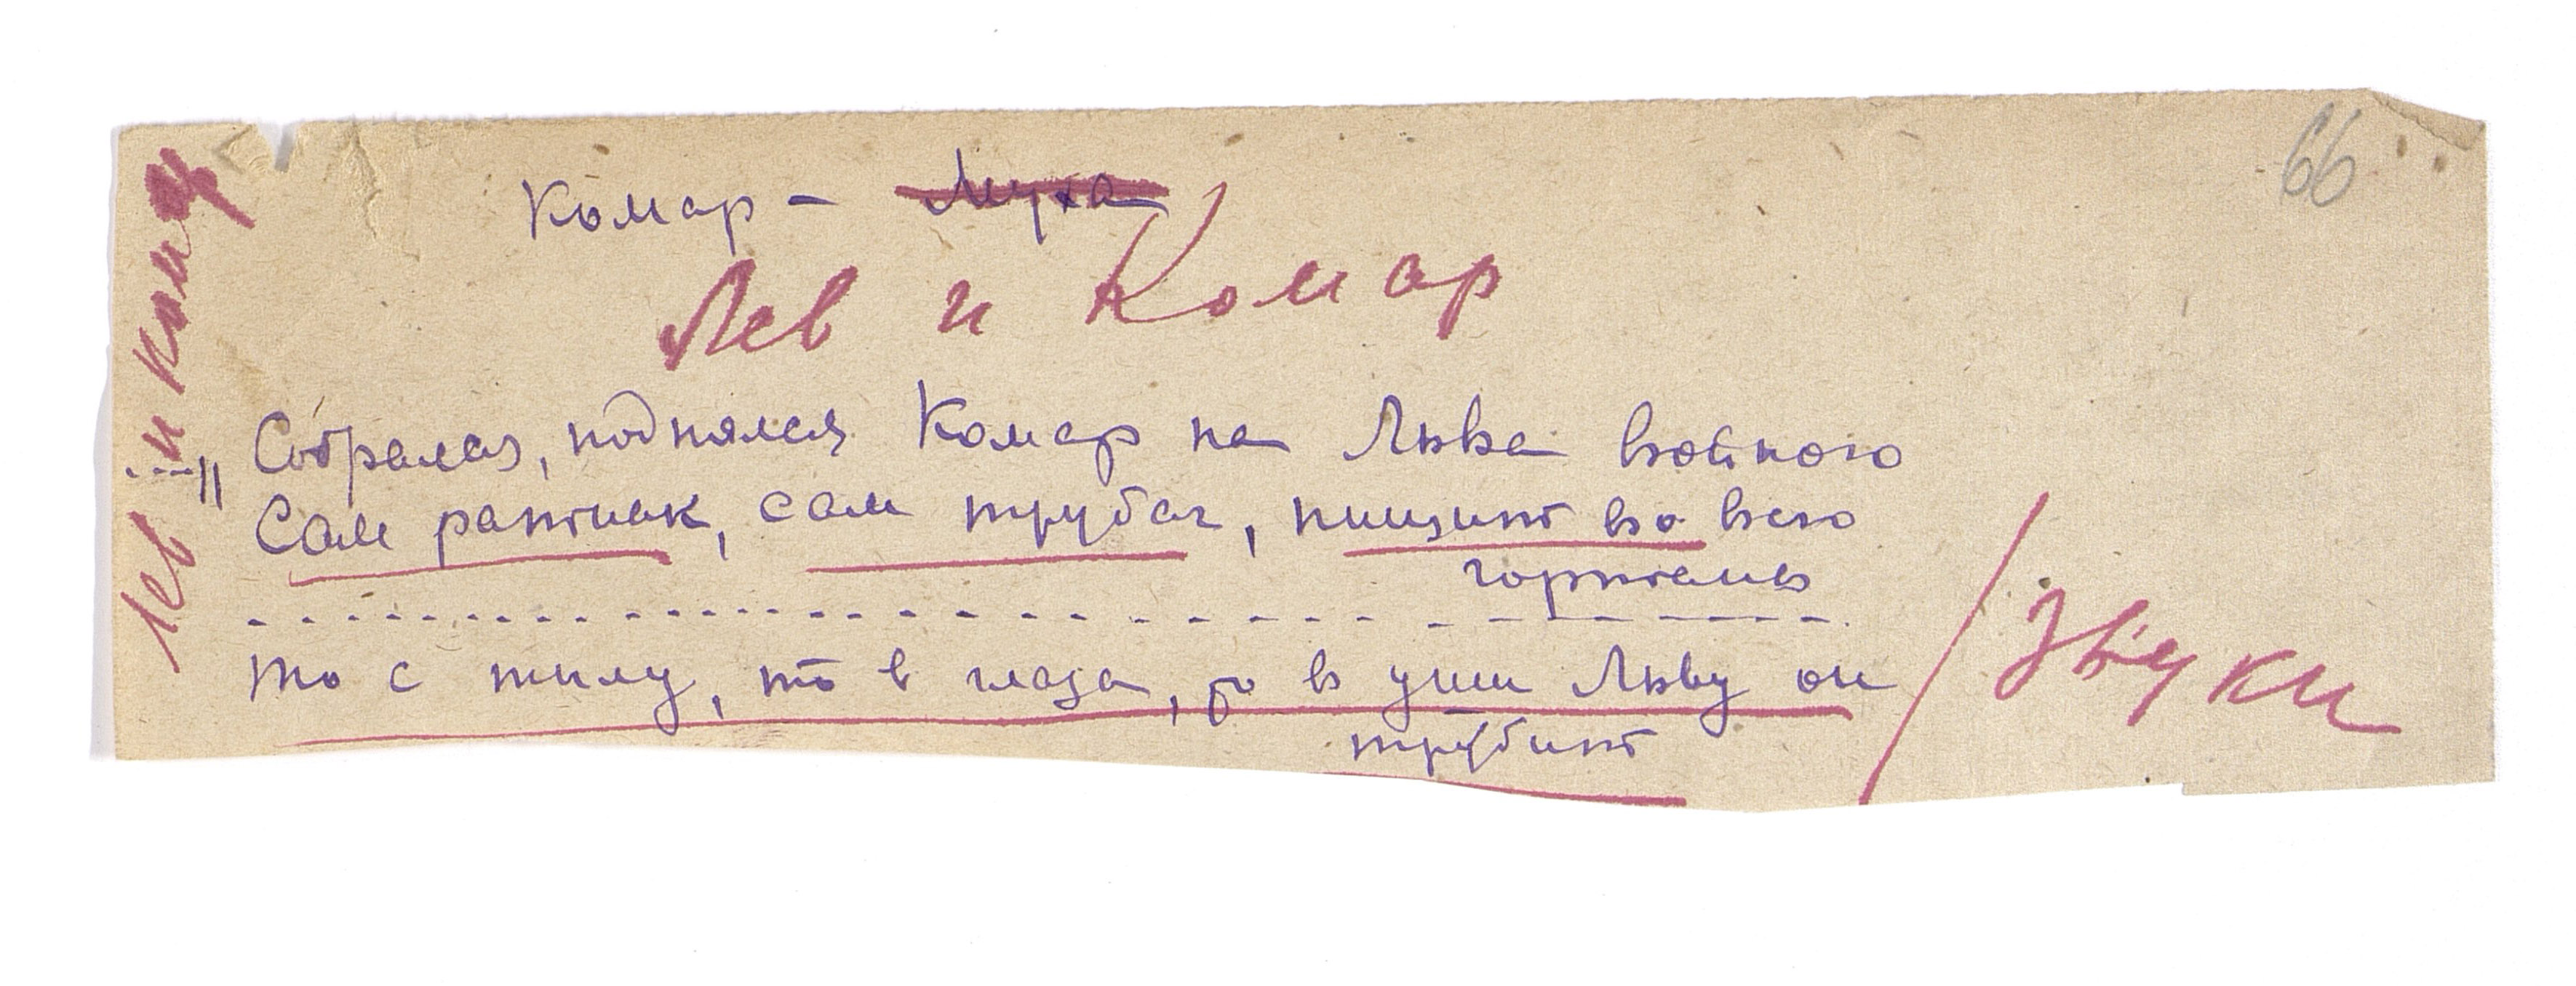 66
Комар - Муха
Лев и Комар
Лев и комар
...„ Собрался, поднялся Комар на Льва войною
Сам ратник, сам трубач, пищит во всю
гортань
То с тылу, то в глаза, то в уши Льву он
трубит
Звуки